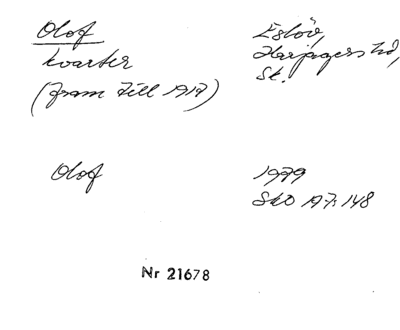 Olof
kvarter
(fram till 1917)
Eslöv,
Harjagers hd,
Sk.
Olof
1979
SkO A7:148
Nr 21678